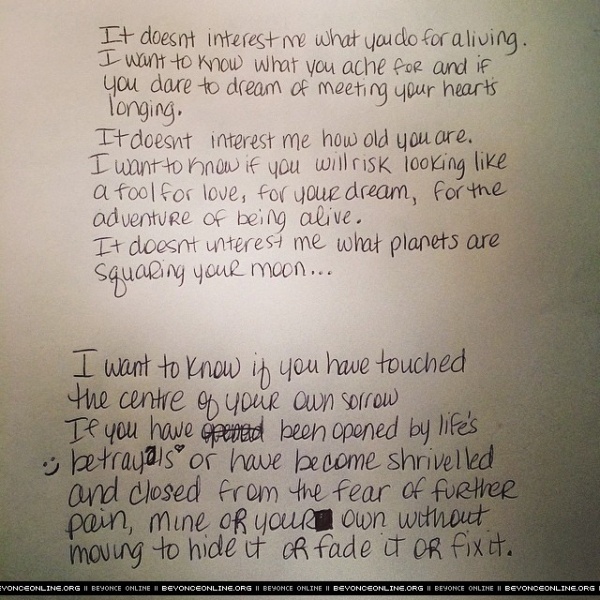 It doesnt interest me what you do for a living.
I want to know what you ache for and if
you dare to dream of meeting your hearts
longing.
It doesnt interest me how old you are.
I want to know if you will risk looking like
a fool for love, for your dream, for the
adventure of being alive.
It doesnt interest me what planets are
squaring your moon...
I want to know if you have touched
the centre of your own sorrow
If you have been opened by life's
betrayals or have become shrivelled
and closed from the fear of further
pain, mine or your own without
moving to hide it or fade it or fix it.
BEYONCEONLINE.ORG || BEYONCE ONLINE || BEYONCEONLINE.ORG || BEYONCE ONLINE || BEYONCEONLINE.ORG || BEYONCE ONLINE || BEYONCEONLINE.ORG